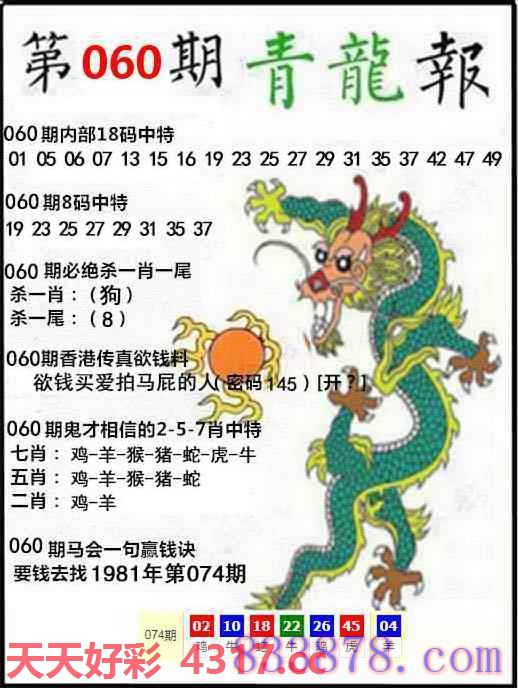 第060期青龍報
060期内部18码中特
01 05 06 07 13 15 16 19 23 25 27 29 31 35 37 42 47 49
060期8码中特
19 23 25 27 29 31 35 37
060期必绝杀一肖一尾
杀一肖：（狗）
杀一尾：（8）
060期香港传真欲钱料
欲钱买爱拍马屁的人(密码145）[开？]
060期鬼才相信的2-5-7肖中特
七肖：鸡-羊-猴-猪-蛇-虎-牛
五肖：鸡-羊-猴-猪-蛇
二肖：鸡-羊
060期马会一句赢钱诀
要钱去找1981年第074期
074期 02 10 18 22 26 45 04
鸡 牛 牛 鸡 虎 羊
天天好彩 4317.cc